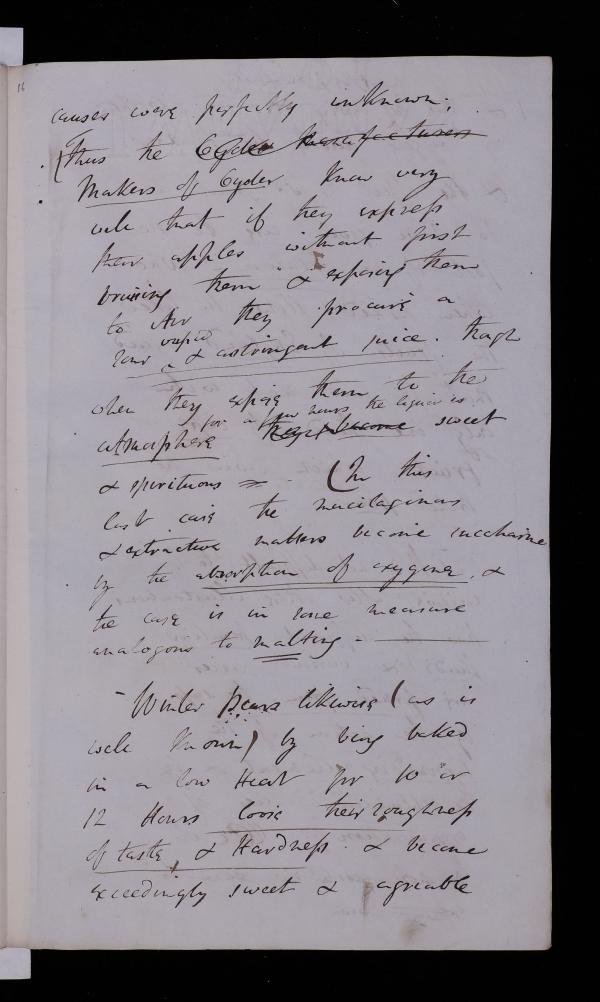 16
causes were perfectly unknown;
(Thus the Cyder Manufacturers
Makers of Cyder know very
well that if they express
their apples without first
bruising them & exposing them
to Air they procure a
vapid
sour & astringent juice. though
when they expose them to the
for a few hours the liquor is
atmosphere they become sweet
& spirituous = (In this
last case the mucilaginous
& extractive matters become saccharine
by the absorption of oxygene, &
the case is in some measure
analogous to malting -
- Winter Pears likewise (as is
well known) by being baked
in a low Heat for 10 or
12 Hours loose their roughness
of taste, & Hardness. & become
exceedingly sweet & agreable